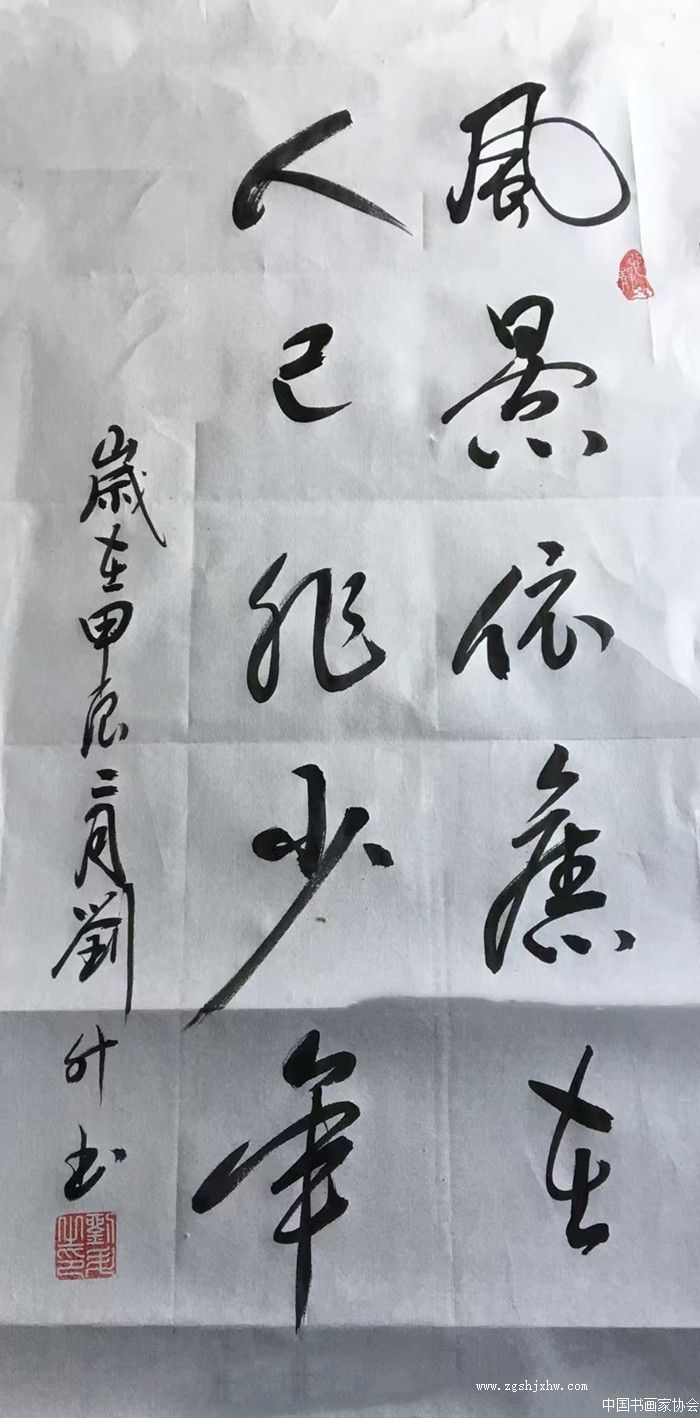 風景依舊在
人已非少年
歲在甲辰二月劉升书
www.zgshjxhw.com
中国书画家协会